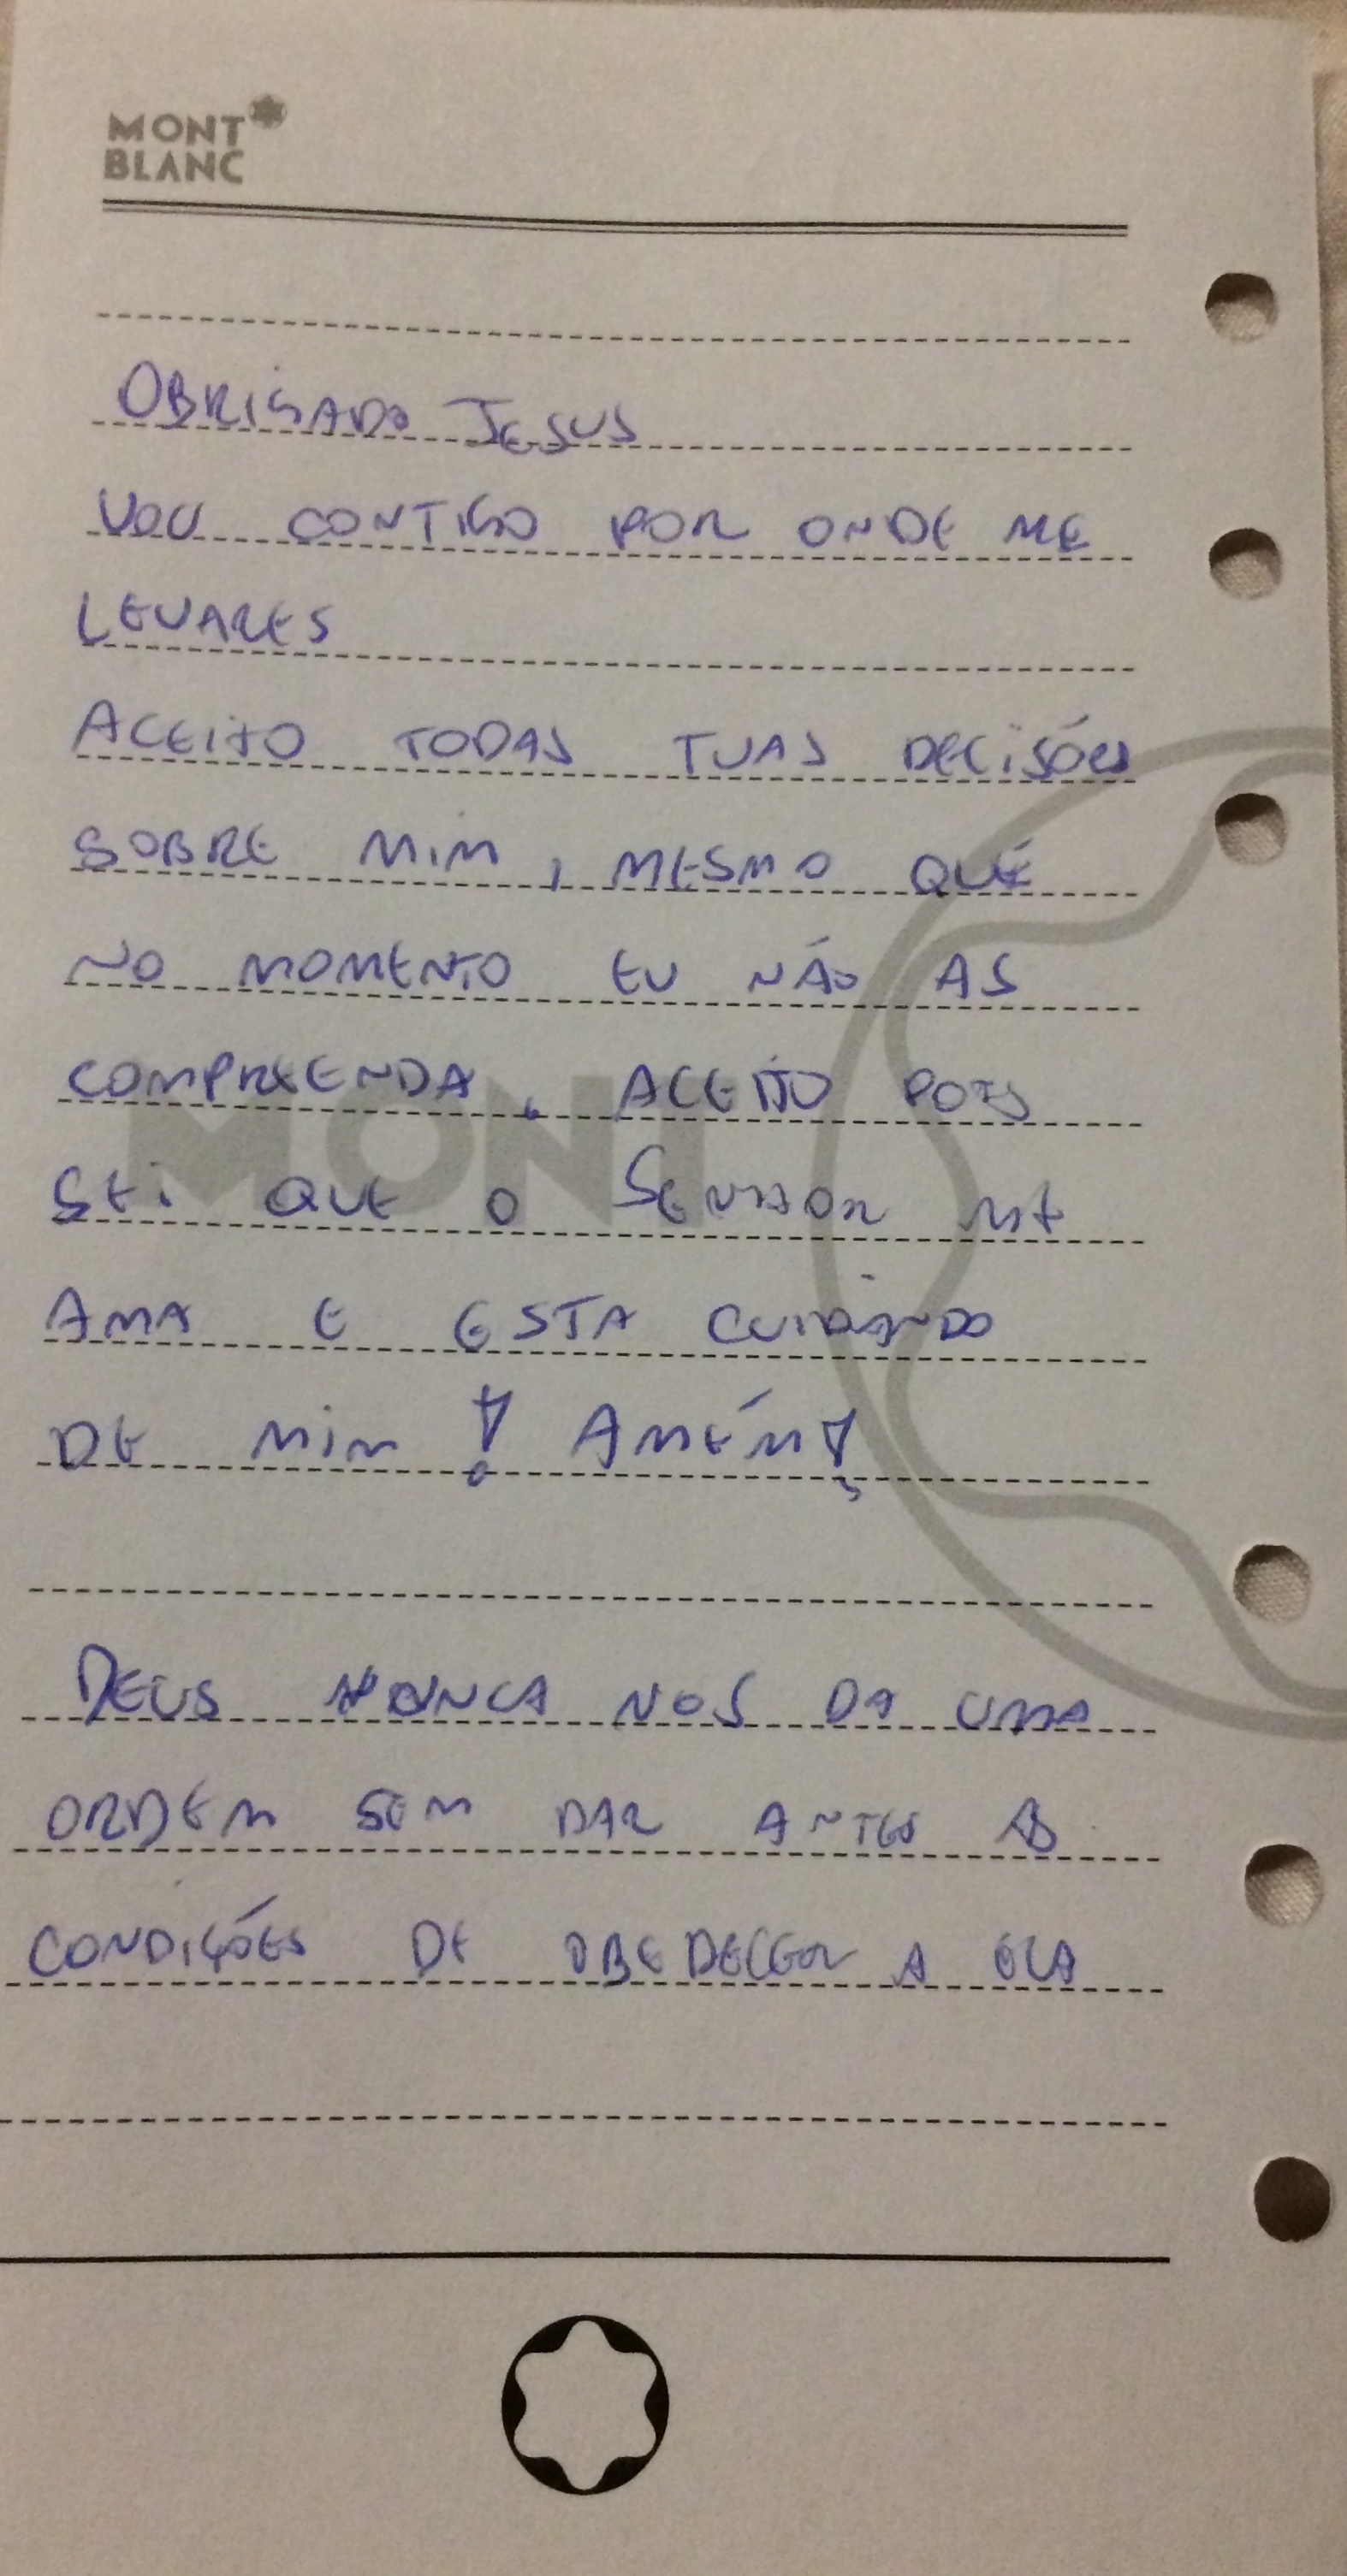 MONT
BLANC
OBRIGADO JESUS
VOU CONTIGO POR ONDE ME
LEVARES
ACEITO TODAS TUAS DECISÓES
SOBRE MIM, MESMO QUE
NO MOMENTO EU NÃO AS
COMPREENDA. ACEITO POIS
SEI QUE O SENHOR ME
AMA E ESTA CUIDANDO
DE MIM! AMÉM!
MONT
DEUS NUNCA NOS DA UMA
ORDEM SEM DAR ANTES AS
CONDIÇÓES DE OBEDECER A ELA